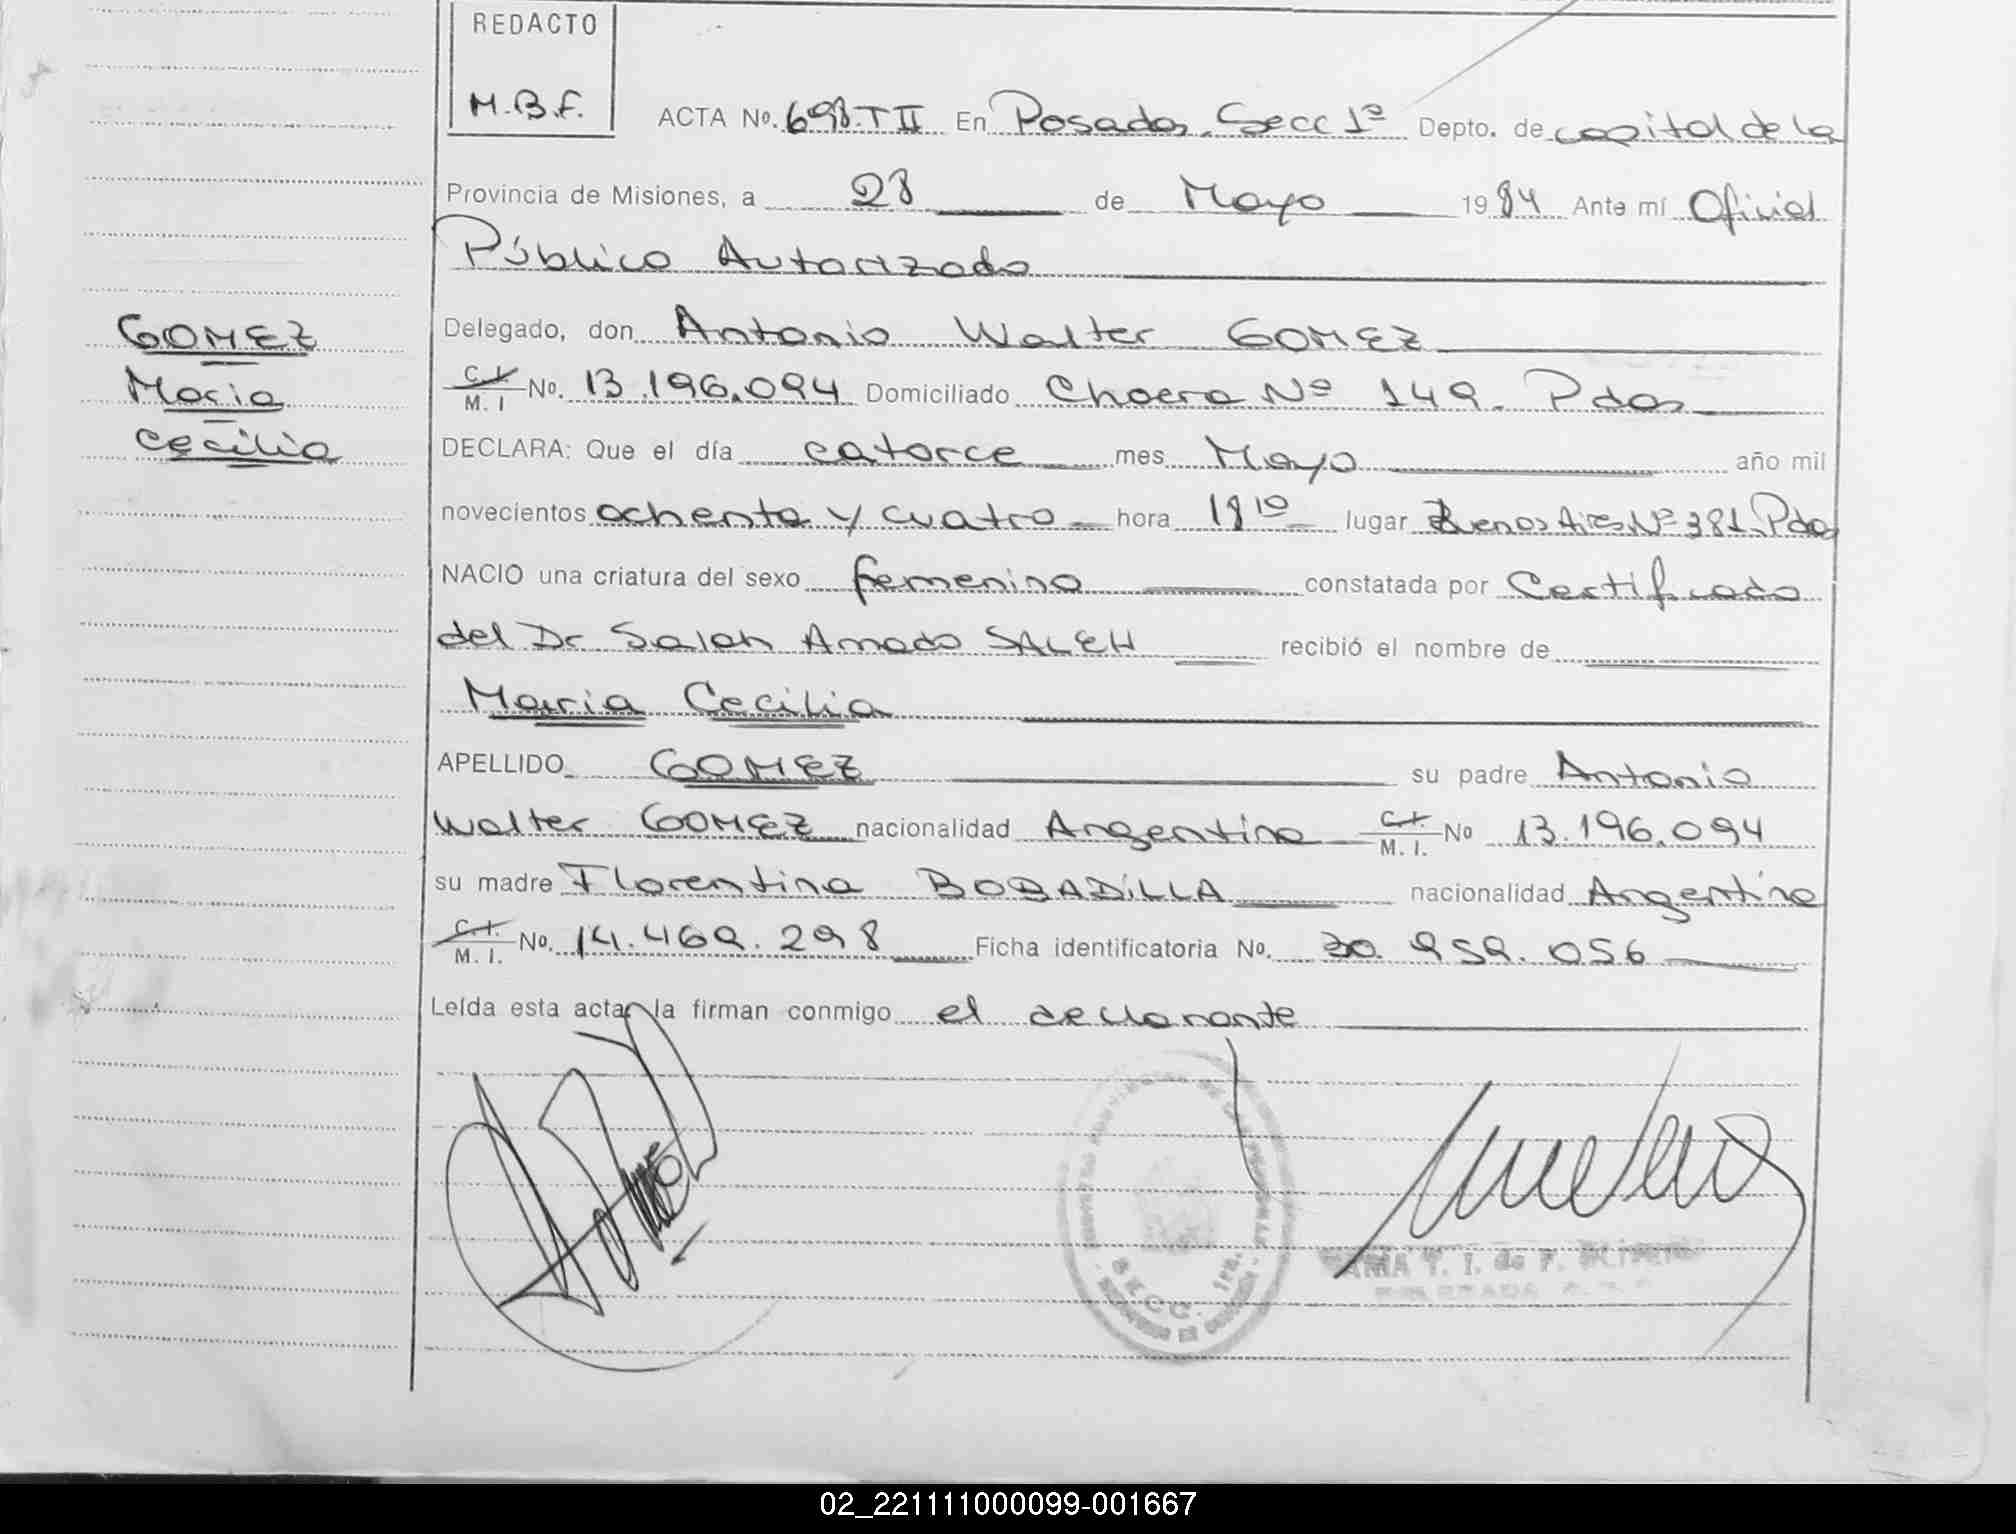 REDACTO
M.B.F.
ACTA Nº. 698.TII En Posadas. Secc 1ª Depto. de capital de la
Provincia de Misiones, a 28 de Mayo 1984 Ante mí Oficial
Público Autorizado
GOMEZ
Maria
Cecilia
Delegado, don Antonio Walter GOMEZ
C.I. M. I Nº. 13.196.094 Domiciliado Nº 149. Pdas
DECLARA: Que el día catorce mes Mayo año mil
novecientos ochenta y cuatro hora 18 10 lugar Buenos Aires Nº 381. Pdas
NACIO una criatura del sexo femenino constatada por Certificado
del Dr. Salah Amado SALEH recibió el nombre de
Maria Cecilia
APELLIDO GOMEZ su padre Antonio
Walter GOMEZ nacionalidad Argentina C.I. M. I. Nº 13.196.094
su madre Florentina BOBADILLA nacionalidad Argentina
C.I. M. I. Nº. 14.469.298 Ficha identificatoria Nº. 30.959.056
Leída esta acta, la firman conmigo el declarante
SECC. 1ra.
02_221111000099-001667